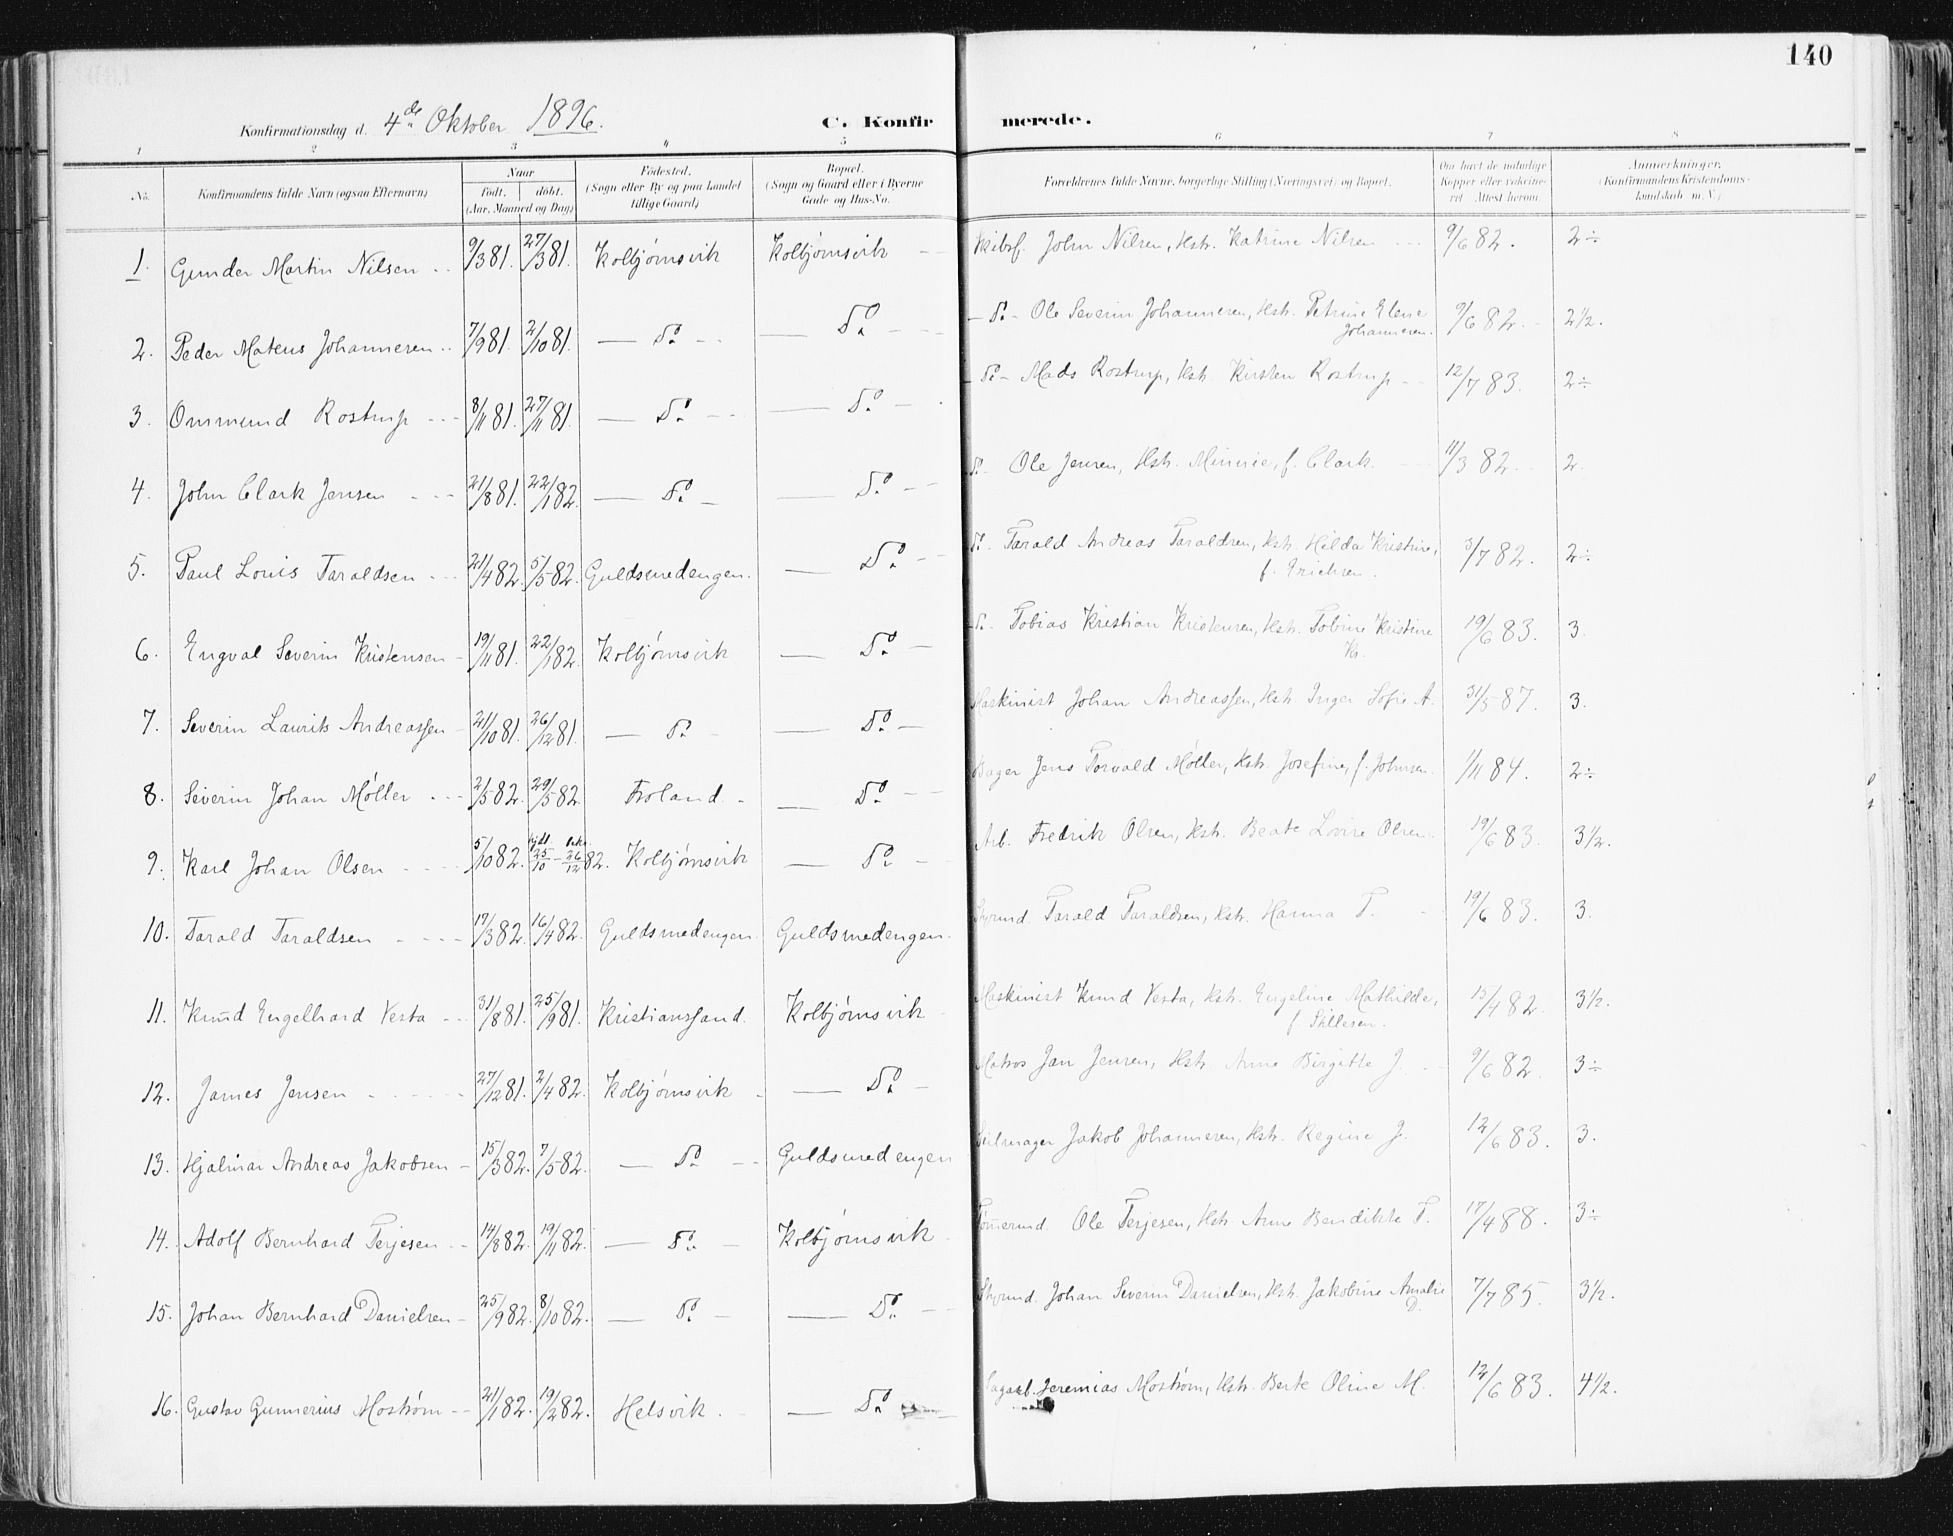 140
Konfirmationsdag d. 4de Oktober 1896.
C. Konfirmerede.
1 2 3 4 5 6 7 8
No. Konfirmandens fulde Navn (ogsaa Efternavn) Naar født. døbt. (Aar, Maaned og Dag) Fødested. (Sogn eller By og paa Landet tillige Gaard) Bopæl. (Sogn og Gaard eller i Byerne Gade og Hus-No. Forældrenes fulde Navne, borgerlige Stilling (Næringsvei) og Bopæl. Om havt de naturlige Kopper eller vaccineret. Attest herom. Anmerkninger. (Konfirmandens Kristendomskundskab m. V.)
1. Gunder Martin Nilsen 9/3 81. 27/3 81. Kolbjørnsvik Kolbjørnsvik Skibsf. John Nilsen, Hstr. Katrine Nilsen 9/6 82. 2÷
2. Peder Mateus Johannesen 7/9 81. 2/10 81. Do Do Do Ole Severin Johannesen, Hstr. Petrine Elene Johannesen. 9/6 82. 2½.
3. Ommund Rostrup 8/11 81. 27/11 81. Do Do Do Mads Rostrup, Hstr. Kirsten Rostrup 12/7 83. 2÷
4. John Clark Jensen 21/8 81. 22/1 82. Do Do Do Ole Jensen, Hstr. Minnie, f. Clark. 11/3 82. 2.
5. Paul Louis Taraldsen 21/4 82. 5/5 82. Guldsmedengen. Do Do Tarald Andreas Taraldsen, Hstr. Hilda Kristine, f. Erichsen. 3/7 82. 2÷
6. Engval Severin Kristensen 19/11 81. 22/1 82. Kolbjørnsvik Do Do Tobias Kristian Kristensen, Hstr. Tobine Kristine Kr. 19/6 83. 3.
7. Severin Laurits Andreassen 21/10 81. 26/12 81. Do Do Maskinist Johan Andreassen, Hstr. Inger Sofie A. 31/5 87. 3.
8. Severin Johan Møller 2/5 82. 29/5 82. Froland. Do Bager Jens Torvald Møller, Hstr. Josefine, f. Johnsen. 1/11 84. 2÷
9. Karl Johan Olsen 5/10 82. hjdt. 25/10 - 26/12 82. Kolbjørnsvik Do Arb. Fredrik Olsen, Hstr. Beate Lovise Olsen 19/6 83. 3½.
10. Tarald Taraldsen 17/3 82. 16/4 82. Guldsmedengen. Guldsmedengen. Styrmd. Tarald Taraldsen, Hstr. Hanna T. 19/6 83. 3.
11. Knud Engelhard Vesta 31/8 81. 25/9 81. Kristianssand. Kolbjørnsvik Maskinist Knud Vesta, Hstr. Engeline Mathilde, f. Stillesen. 15/4 82. 3½.
12. James Jensen 27/12 81. 2/4 82. Kolbjørnsvik Do Matros Jan Jensen, Hstr Anne Birgitte J. 9/6 82. 3÷
13. Hjalmar Andreas Jakobsen 15/3 82. 7/5 82. Do Guldsmedengen Seilmager Jakob Johannesen, Hstr. Regine J. 12/6 83. 3.
14. Adolf Bernhard Terjesen 14/8 82. 19/11 82. Do Kolbjørnsvik Tømermd. Ole Terjesen, Hstr. Anne Bendikte T. 17/4 88. 3÷
15. Johan Bernhard Danielsen 25/9 82. 8/10 82. Do Do Styrmd. Johan Severin Danielsen, Hstr. Jakobine Amalie D. 7/7 85. 3½.
16. Gustav Gunnerius Mostrøm 21/1 82. 19/2 82. Helsvik. Do Sagarb. Jeremias Mostrøm, Hstr. Berte Oline M. 12/6 83. 4½.